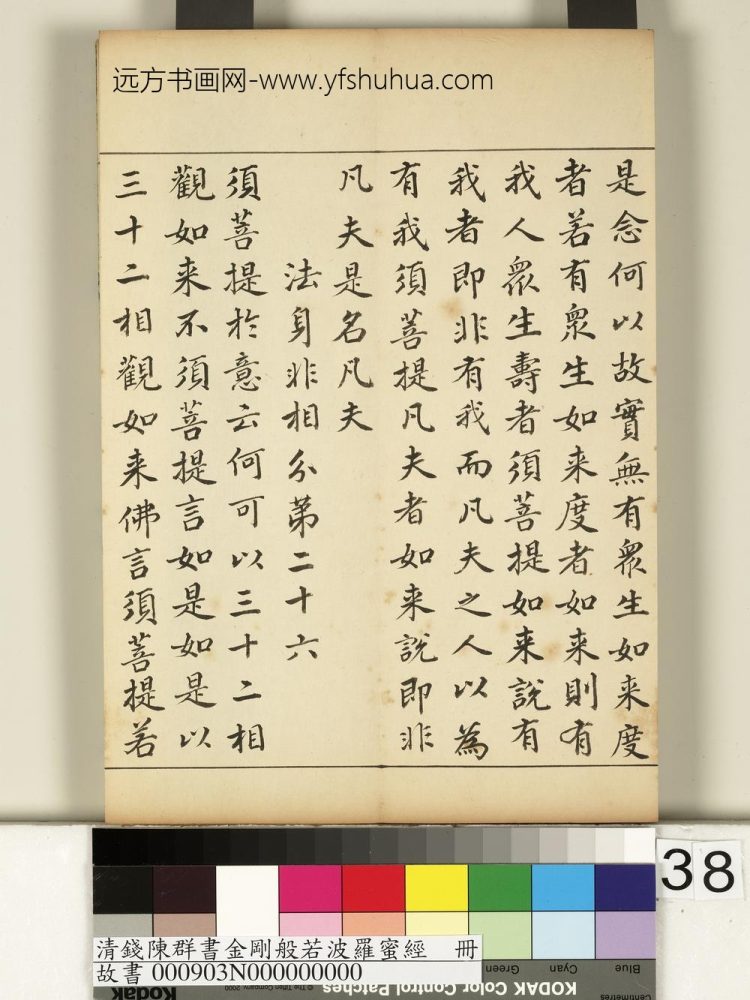 远方书画网-www.yfshuhua.com
是念何以故實無有衆生如来度
者若有衆生如来度者如来則有
我人衆生壽者須菩提如来說有
我者即非有我而凡夫之人以為
有我須菩提凡夫者如来說即非
凡夫是名凡夫
法身非相分第二十六
須菩提於意云何可以三十二相
觀如来不須菩提言如是如是以
三十二相觀如来佛言須菩提若
38
清錢陳群書金剛般若波羅蜜經 冊
故書 000903N000000000
Green
Cyan
Blue
Kodak
© The Tiffen Company, 2000
KODAK Color Control Patches
Centimetres